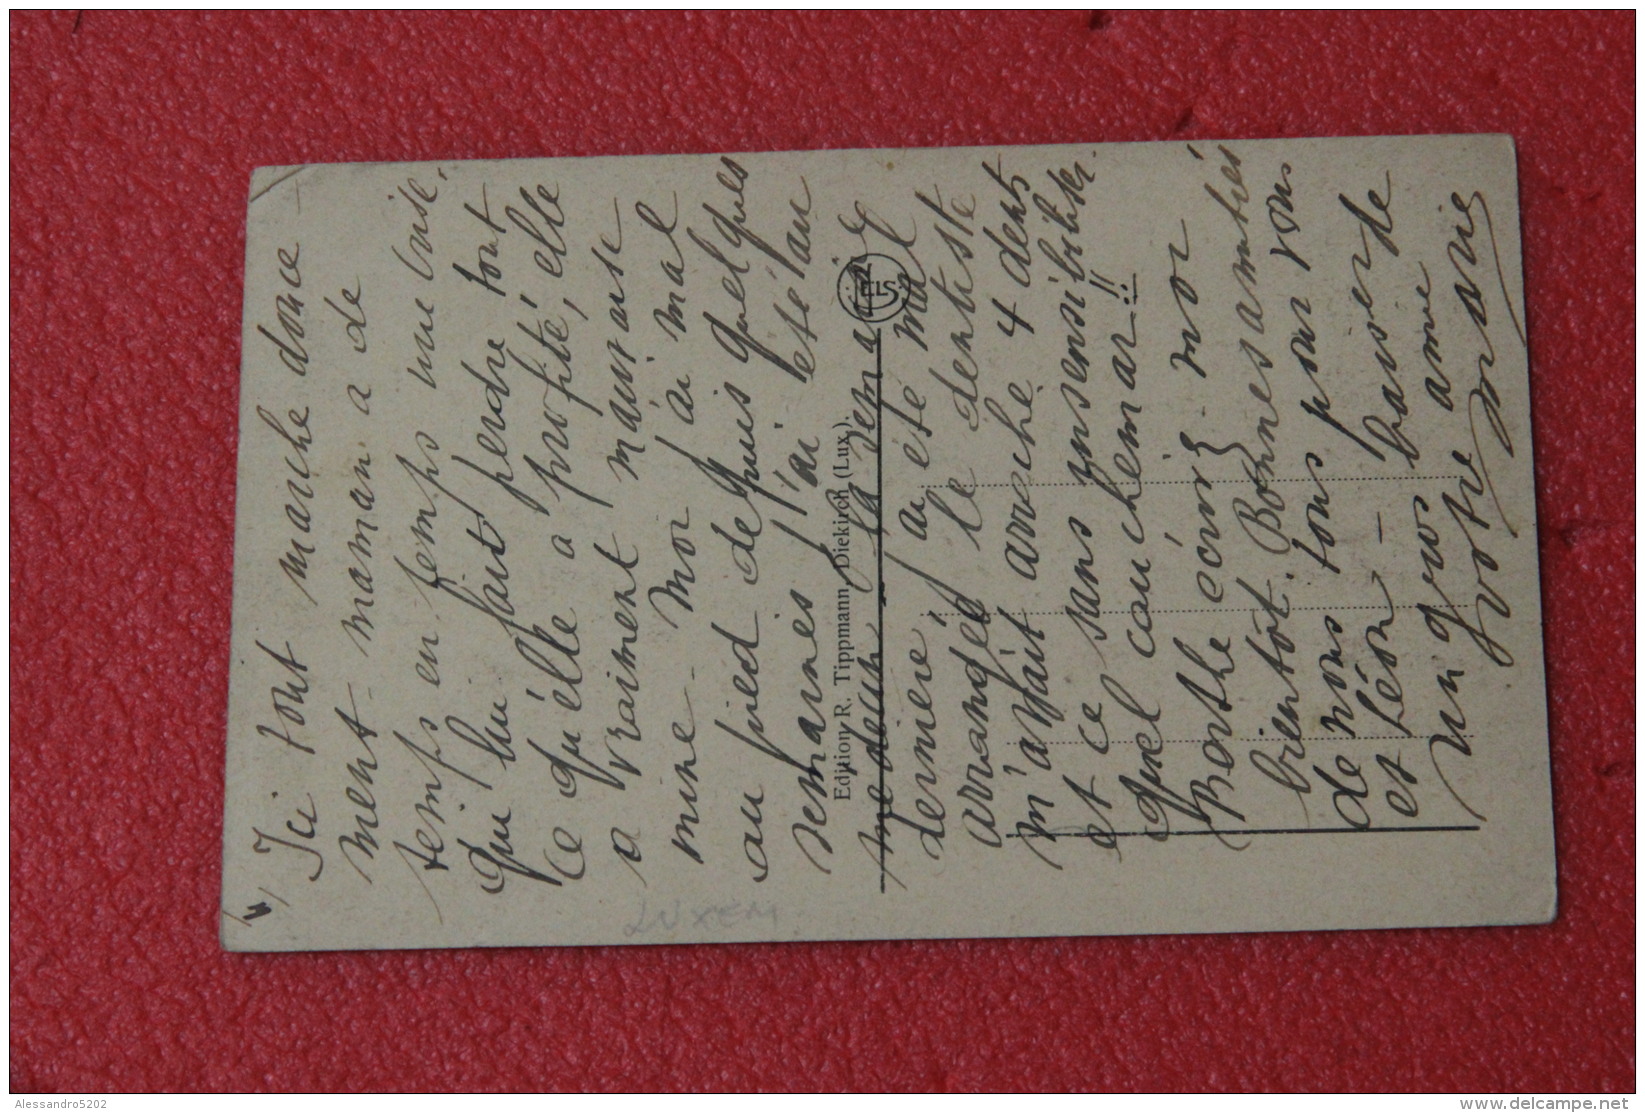 4)
Ici tout marche douce
ment - maman a de
temps en temps une crise,
qui lui fait perdre tout
ce qu'elle a profité, elle
a vraiment mauvaise
mine - Moi j'ai mal
au pied depuis quelques
semaines j'ai été au
médecin la semaine
dernière j'ai été mal
arrangée le dentiste
m'avait arraché 4 dents
et ce sans insensibiliser.
Quel cauchemar!!
Berthe écrivez - moi
bientôt. Bonnes amitiés
de nous tous pour vous
et Léon - baiser de
un gros amie
Votre Marie
Edition R. Tippmann, Diekirch (Lux.).
ELS
LUXEM
Alessandro5202
www.delcampe.net